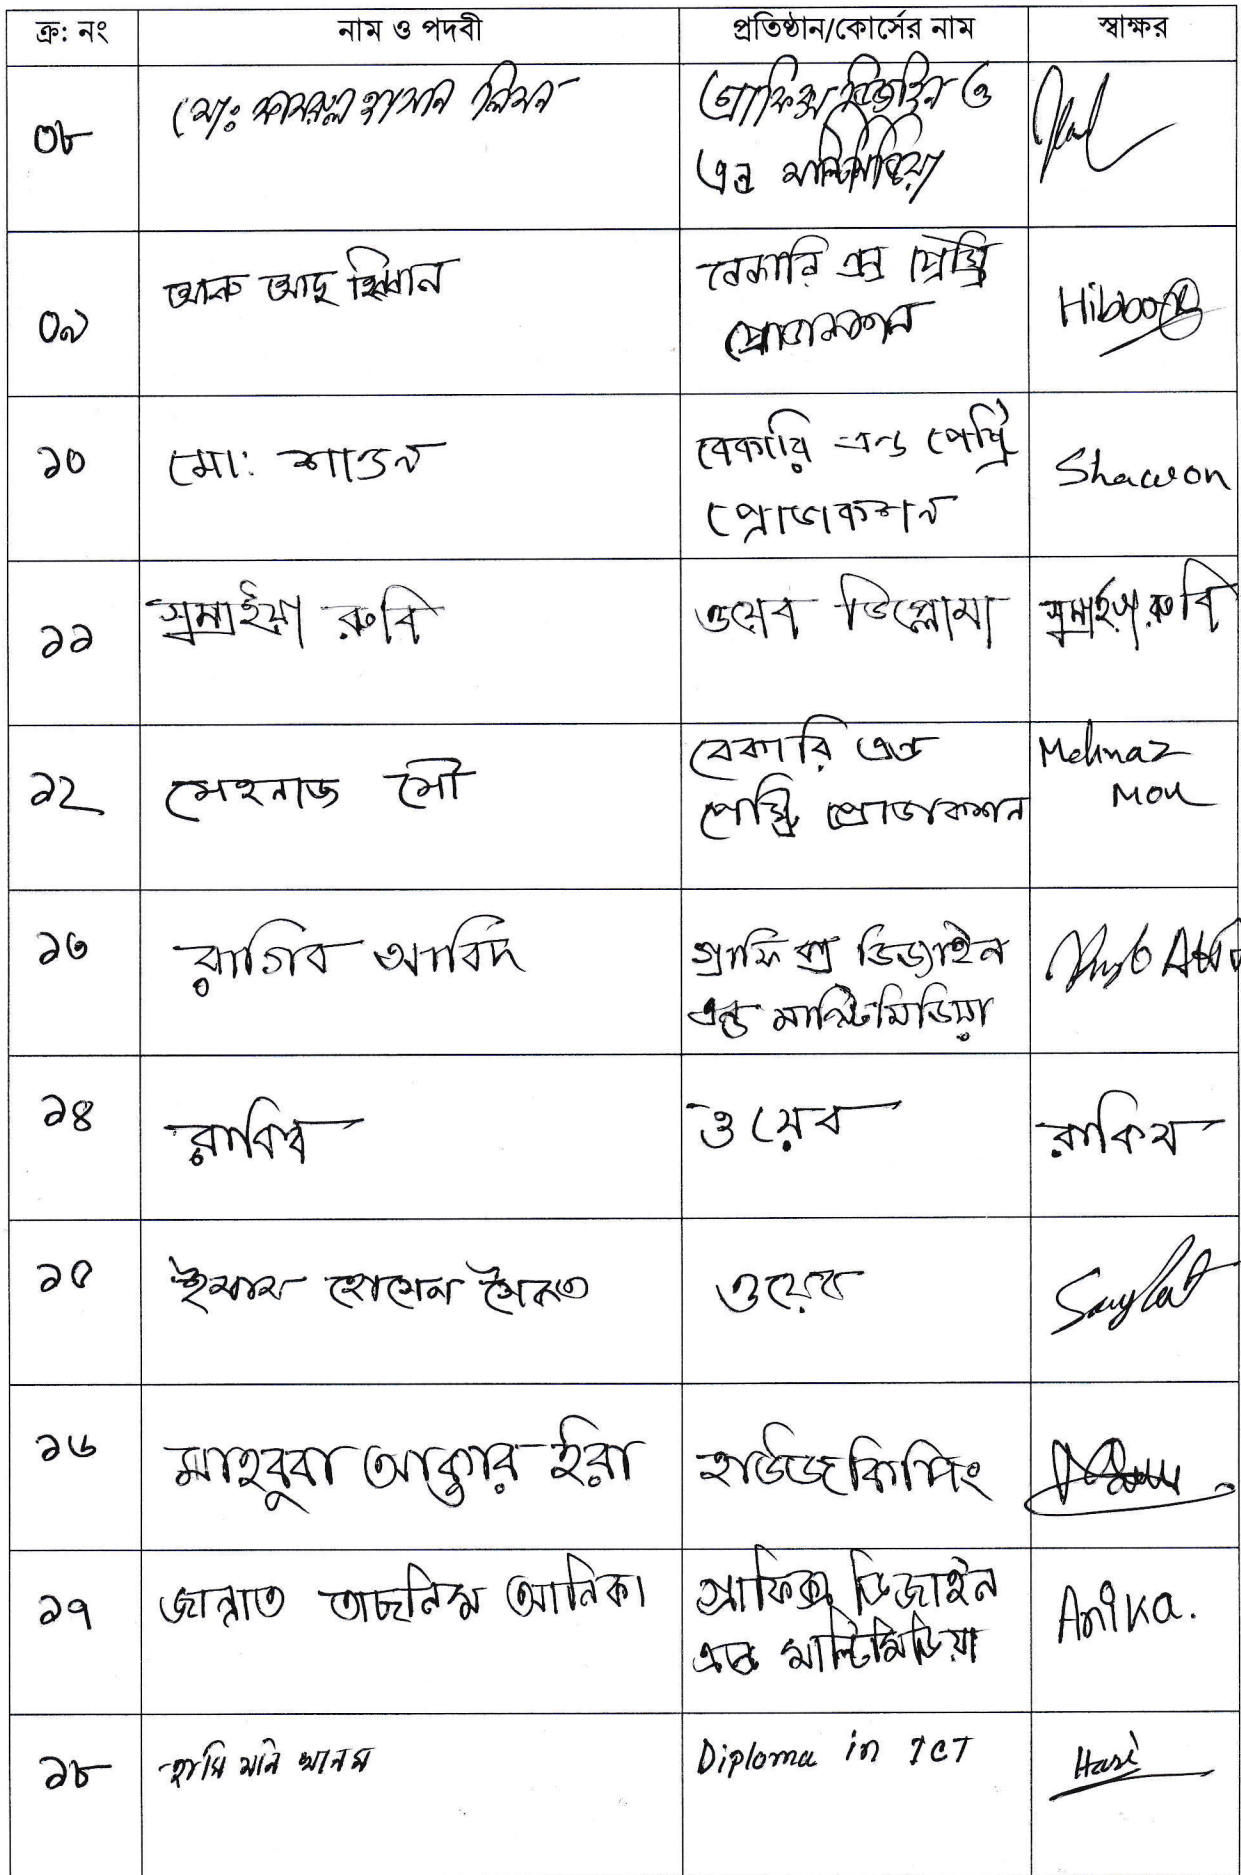 ক্র: নং নাম ও পদবী প্রতিষ্ঠান/কোর্সের নাম স্বাক্ষর
০৮ মোঃ কামরুল হাসান লিমন গ্রাফিক্স ডিজাইন ও
এন্ড মাল্টিমিডিয়া
০৯ হিব্বান বেকারি এন্ড পেস্ট্রি
প্রোডাকশন Hibbon
১০ মো: শাওন বেকারি এন্ড পেস্ট্রি
প্রোডাকশন Shawon
১১ সুমাইয়া রুবি ওয়েব ডিপ্লোমা সুমাইয়া রুবি
১২ মেহনাজ মৌ বেকারি এন্ড
পেস্ট্রি প্রোডাকশন Mehnaz
Mou
১৩ রাগিব আবিদ গ্রাফিক্স ডিজাইন
এন্ড মাল্টিমিডিয়া
১৪ রাকিব ওয়েব রাকিব
১৫ ইমাম হোসেন সৈকত ওয়েব
১৬ মাহবুবা আক্তার ইরা হাউজকিপিং
১৭ জান্নাত তাছনিম আনিকা গ্রাফিক্স ডিজাইন
এন্ড মাল্টিমিডিয়া Anika.
১৮ হাসি মনি খানম Diploma in ICT Hasi